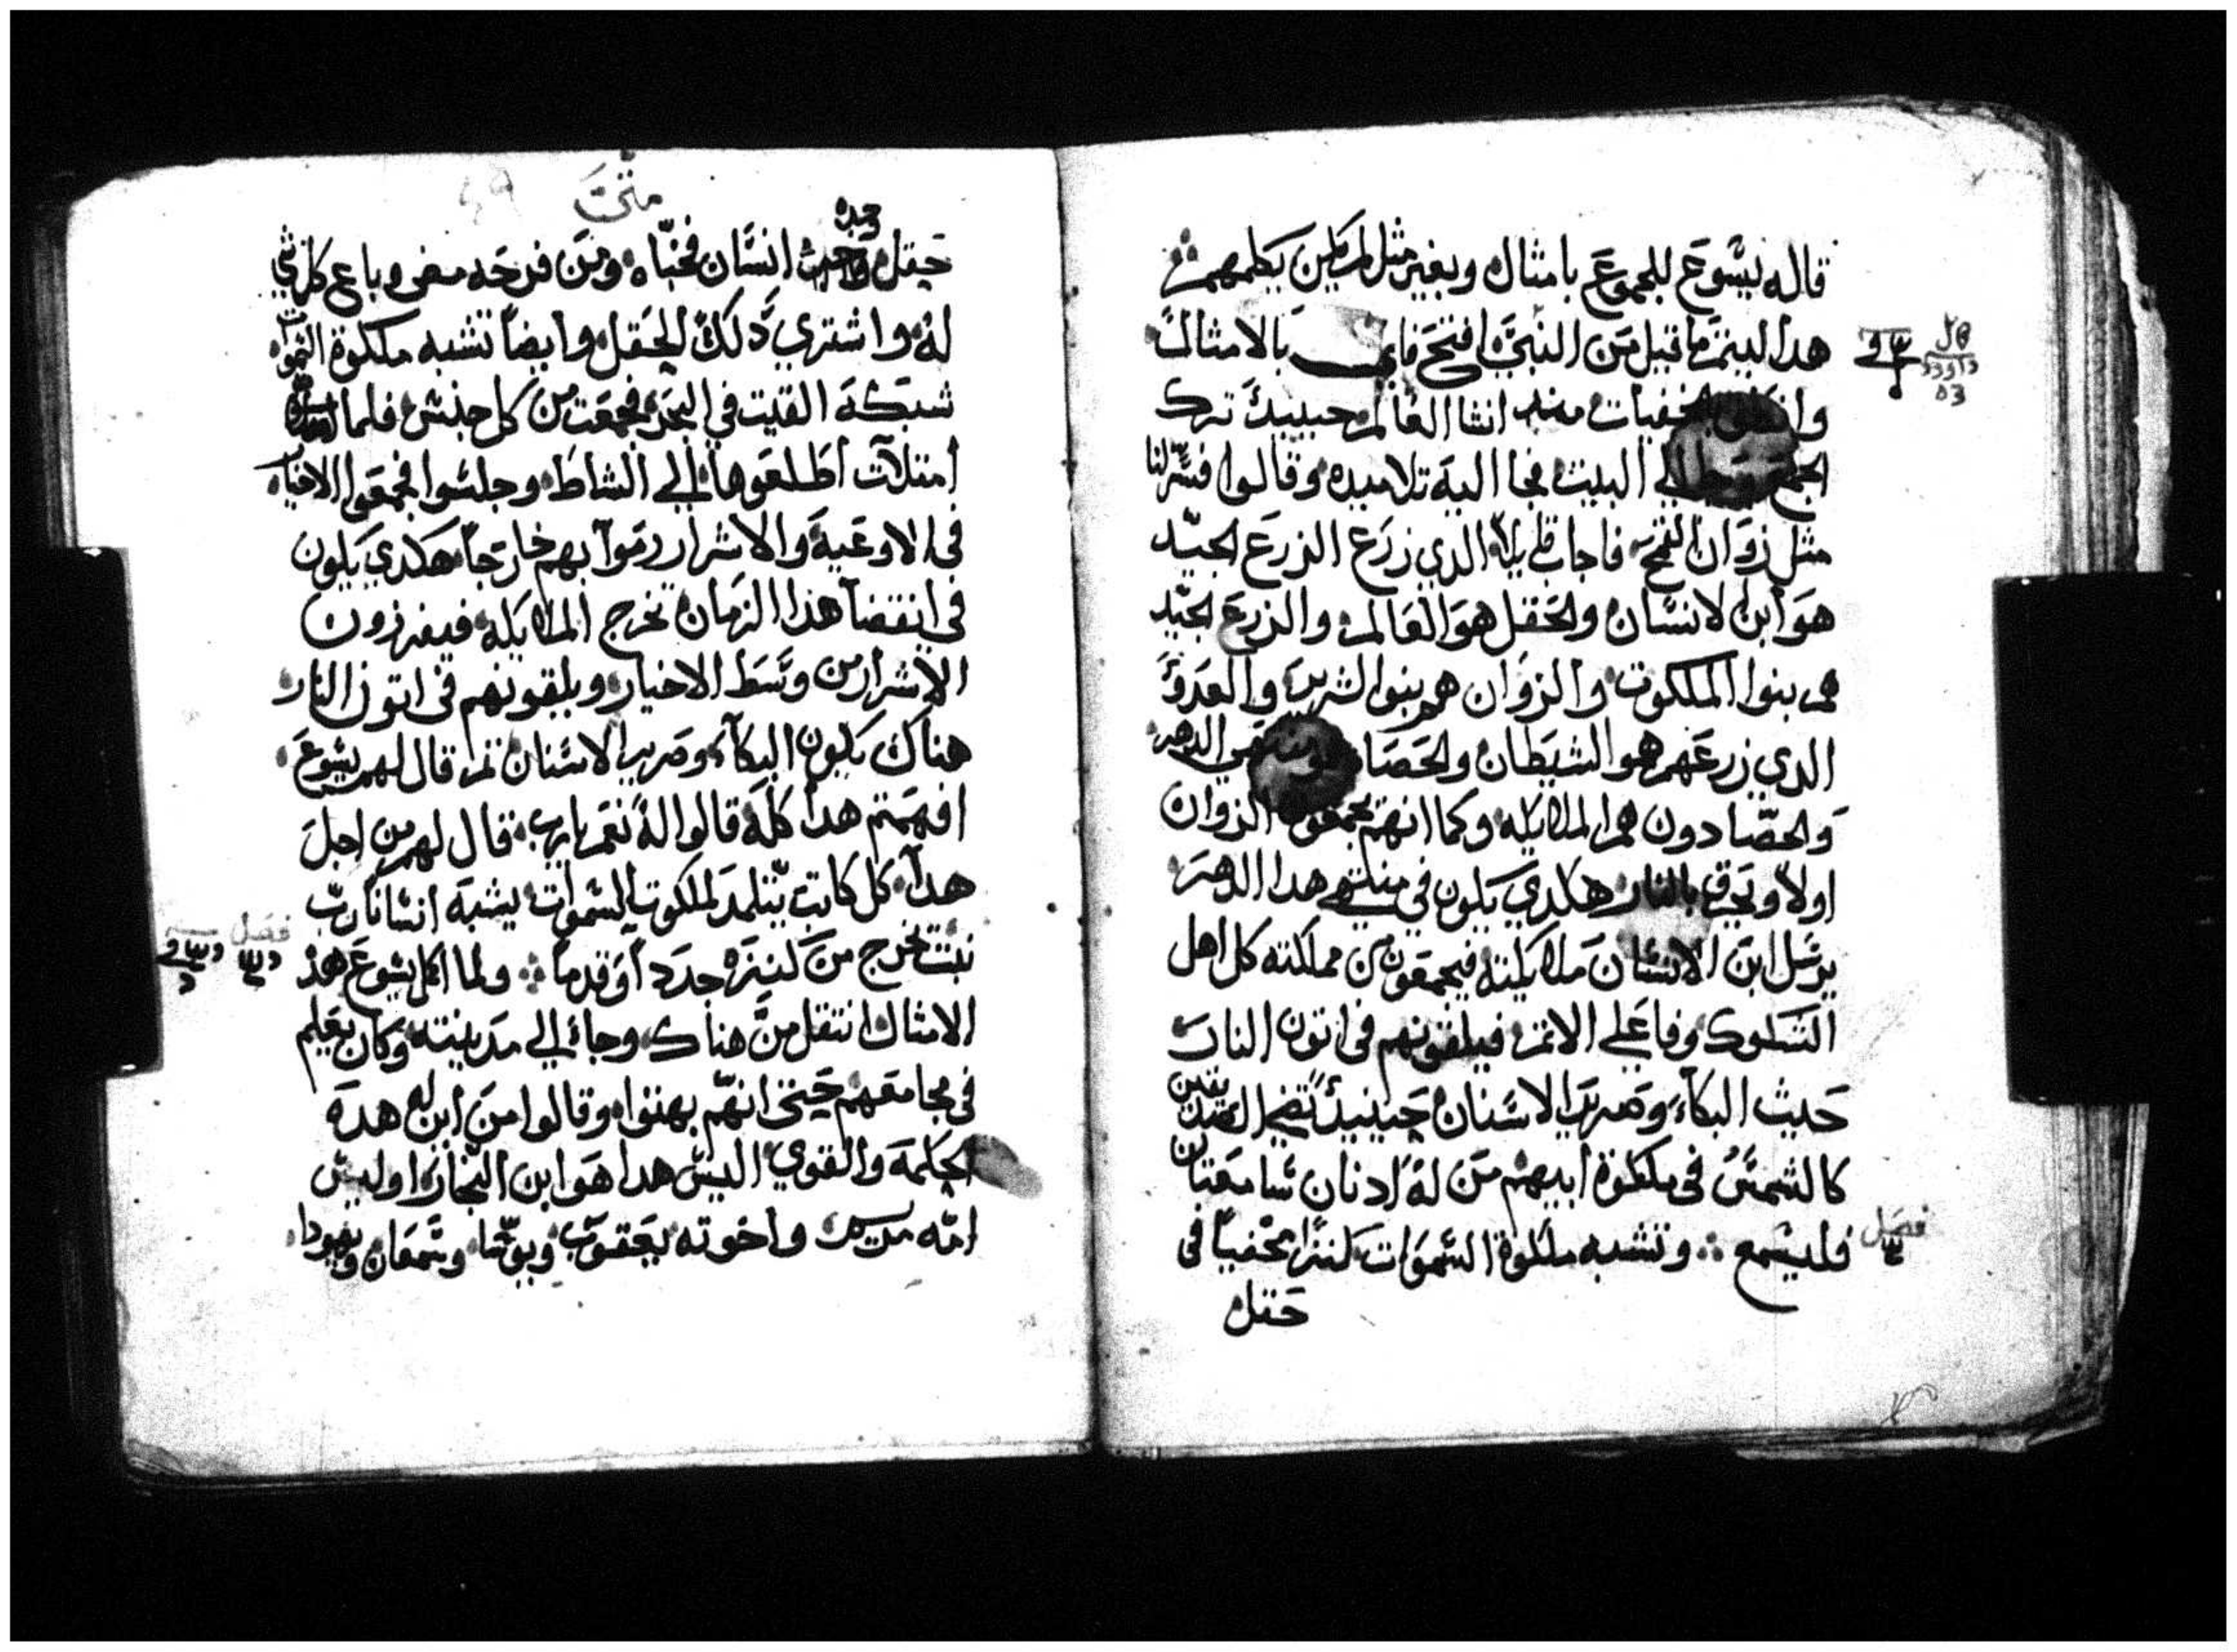 قاله يسوع للجموع بامثال وبغير مثل لم يكن يكلمهم
هدا ليتم ما قيل من النبي افتح فاي بالامثال
الخفيات منذ انشا العالم حينيد ترك
البيت فجا اليه تلاميده وقالوا فسر لنا
مثل زوان القمح فاجاب قايلا الدي زرع الزرع الجيد
هو ابن الانسان والحقل هو العالم والزرع الجيد
هم بنوا الملكوت والزوان هم بنوا الشرير والعدو
الدي زرعهم هو الشيطان والحصاد الدهر
والحصادون هم الملايكه وكما انهم يجمعون الزوان
اولا ويحرق بالنار هكدي يكون في منتهي هدا الدهر
يرسل ابن الانسان ملايكته فيجمعون من مملكته كل اهل
الشكوك وفاعلي الاتم فيلقونهم في اتون النار
حيث البكاء وصرير الاسنان حينيد تضي الصديقين
كالشمس في ملكوة ابيهم من له ادنان سامعتان
فليسمع وتشبه ملكوة السموات كنزا مخفيا في
حقل
قال
داوود
٥٣
فصل
متي
وجده
حقل انسان فخباه ومن فرحه مضي وباع كل شي
له واشتري دلك الحقل وايضا تشبه ملكوة السموات
شبكه القيت في البحر فجمعت من كل جنس فلما
امتلات اطلعوها الي الشاط وجلسوا فجمعوا الاخيار
في الاوعية والاشرار رموا بهم خارجا هكدي يكون
في انقضا هذا الزمان تخرج الملايكه فيفرزون
الاشرار من وسط الاخيار ويلقونهم في اتون النار
هناك يكون البكاء وصرير الاسنان تم قال لهم يسوع
افهمتم هدا كله قالوا له نعم يارب قال لهم من اجل
هدا كل كاتب يتلمد لملكوت السموات يشبه انسانا رب
بيت يخرج من كنزه جدد او قدما ولما اكمل يسوع هذ
الامثال انتقل من هناك وجاء الي مدينته وكان يعلم
في مجامعهم حتي انهم بهتوا وقالوا من اين له هده
الحكمة والقوي اليس هدا هو ابن النجار اوليس
امه مريم واخوته يعقوب ويوسا وسمعان ويهودا
فصل